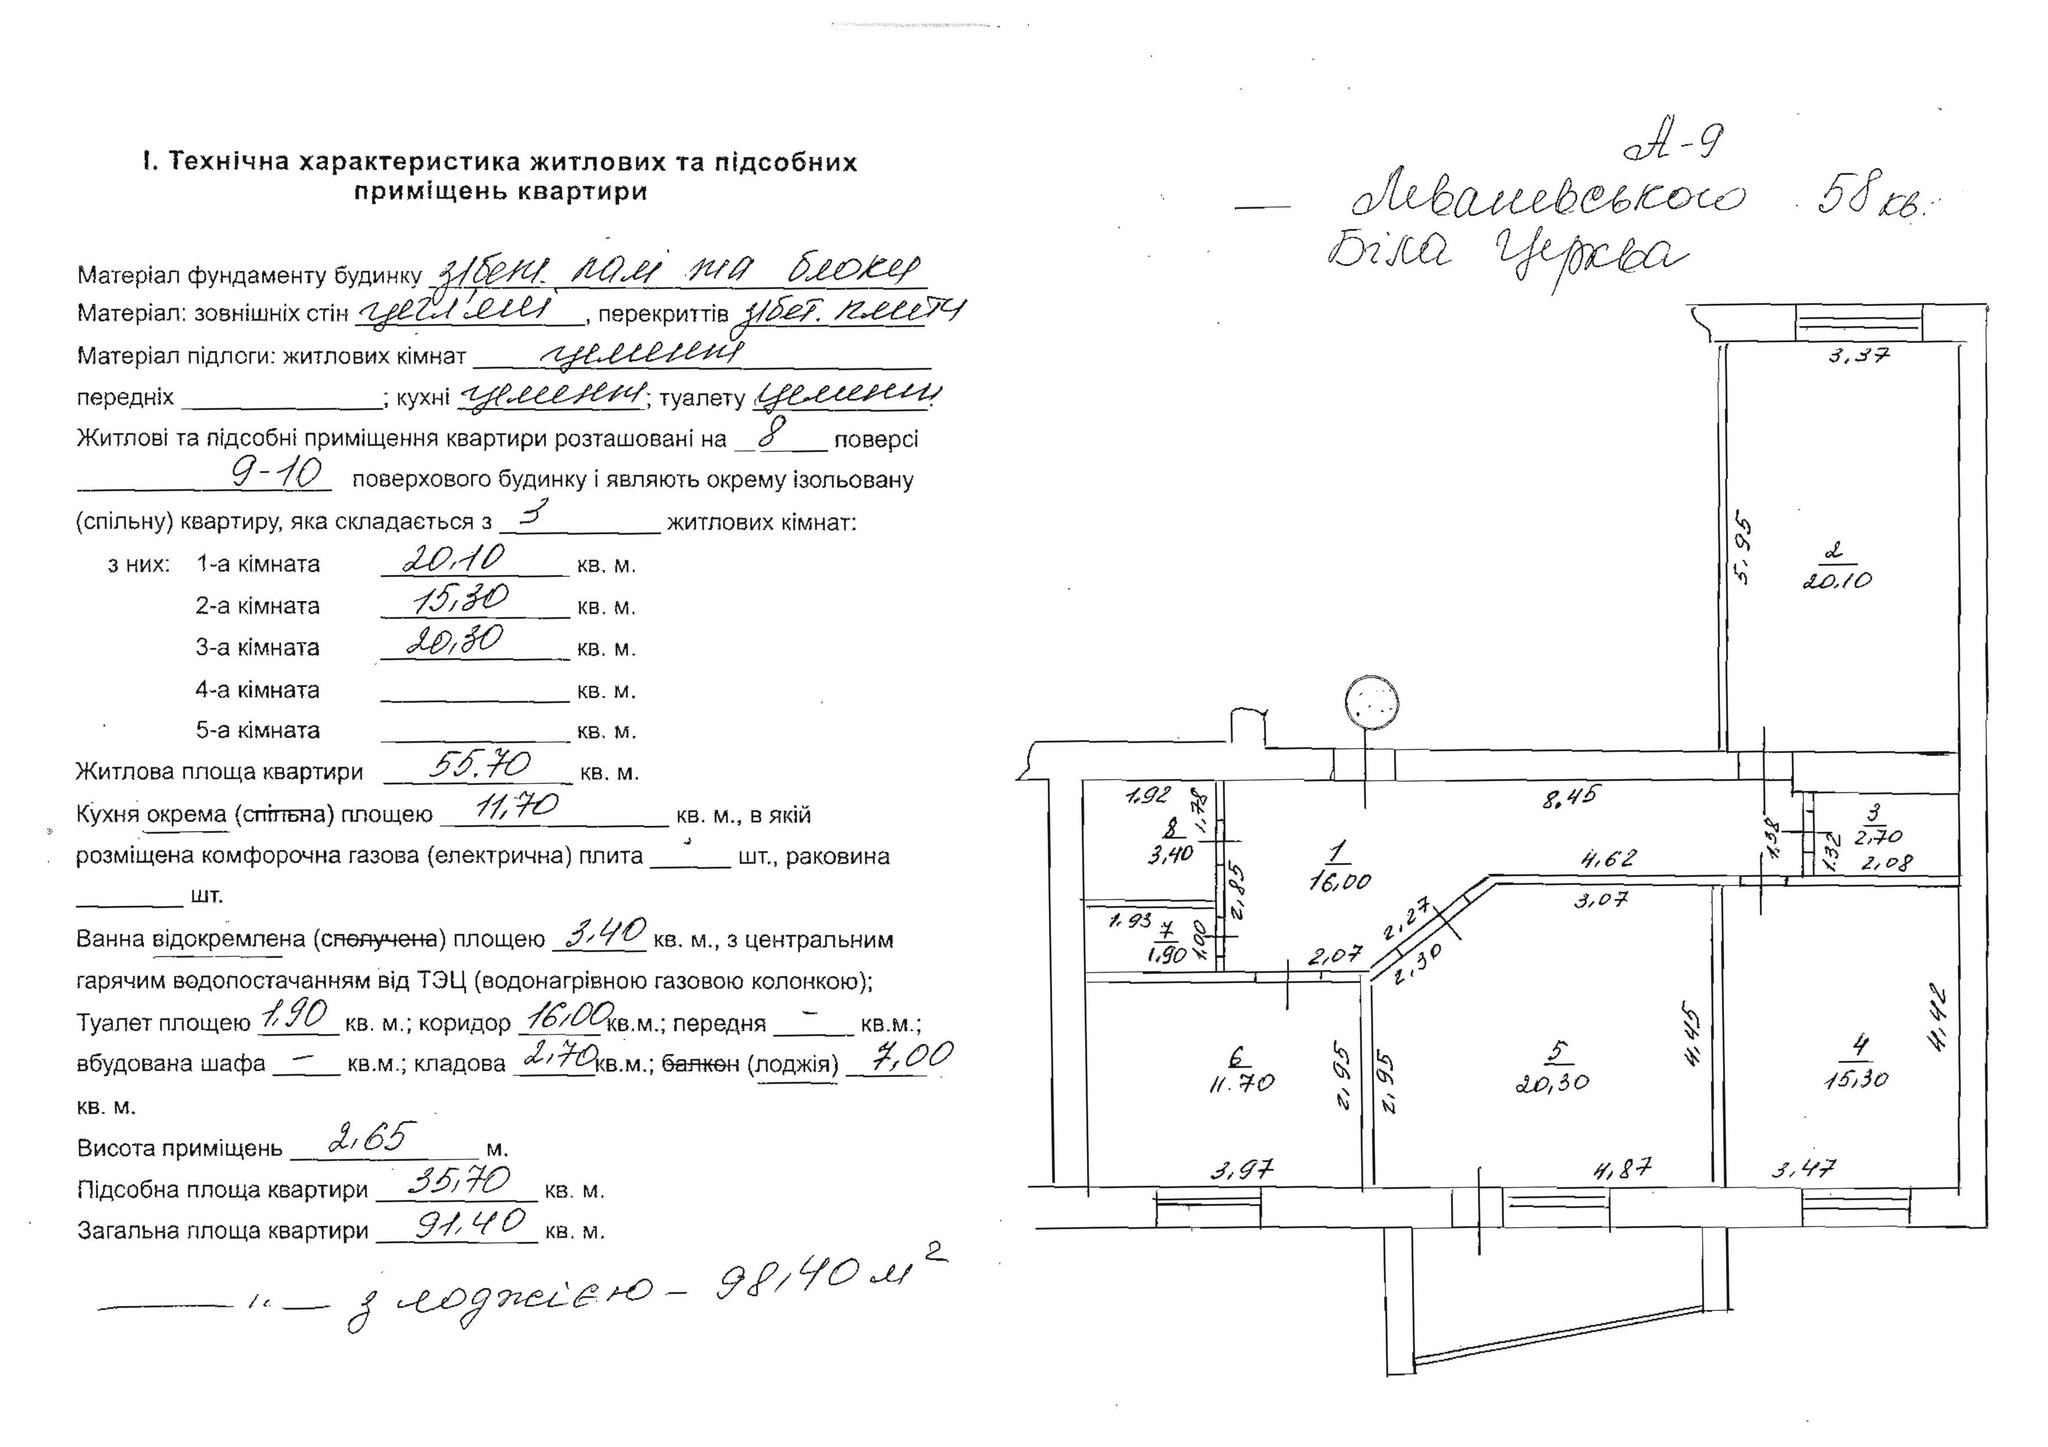 І. Технічна характеристика житлових та підсобних
приміщень квартири
Матеріал фундаменту будинку з/бет. палі та блоки
Матеріал: зовнішніх стін цегляні, перекриттів з/бет. плити
Матеріал підлоги: житлових кімнат цемент
передніх ; кухні цемент; туалету цемент
Житлові та підсобні приміщення квартири розташовані на 8 поверсі
9-10 поверхового будинку і являють окрему ізольовану
(спільну) квартиру, яка складається з 3 житлових кімнат:
з них: 1-а кімната 20,10 кв. м.
2-а кімната 15,30 кв. м.
3-а кімната 20,30 кв. м.
4-а кімната кв. м.
5-а кімната кв. м.
Житлова площа квартири 55.70 кв. м.
Кухня окрема (спільна) площею 11,70 кв. м., в якій
розміщена комфорочна газова (електрична) плита шт., раковина
шт.
Ванна відокремлена (сполучена) площею 3,40 кв. м., з центральним
гарячим водопостачанням від ТЭЦ (водонагрівною газовою колонкою);
Туалет площею 1,90 кв. м.; коридор 16,00 кв.м.; передня – кв.м.;
вбудована шафа – кв.м.; кладова 2,70 кв.м.; балкон (лоджія) 7,00
кв. м.
Висота приміщень 2,65 м.
Підсобна площа квартири 35,70 кв. м.
Загальна площа квартири 91,40 кв. м.
— " — з лоджією – 98,40 м²
А-9
— Леваневського 58 кв.
Біла Церква
3,37
5,95
2
20,10
1,92
1,78
8
3,40
8,45
1
16,00
2,85
4,62
1,38
1,32
3
2,70
2,08
1,93
7
1,90
1,00
2,07
2,27
2,30
3,07
6
11.70
2,95
2,95
5
20,30
4,45
4
15,30
4,42
3,97
4,87
3,47